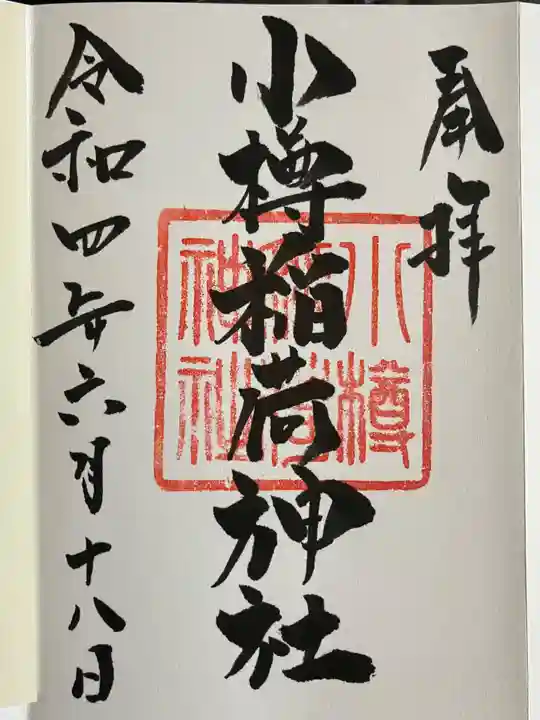 奉拝
小樽稲荷神社
小樽
稲荷
神社
令和四年六月十八日